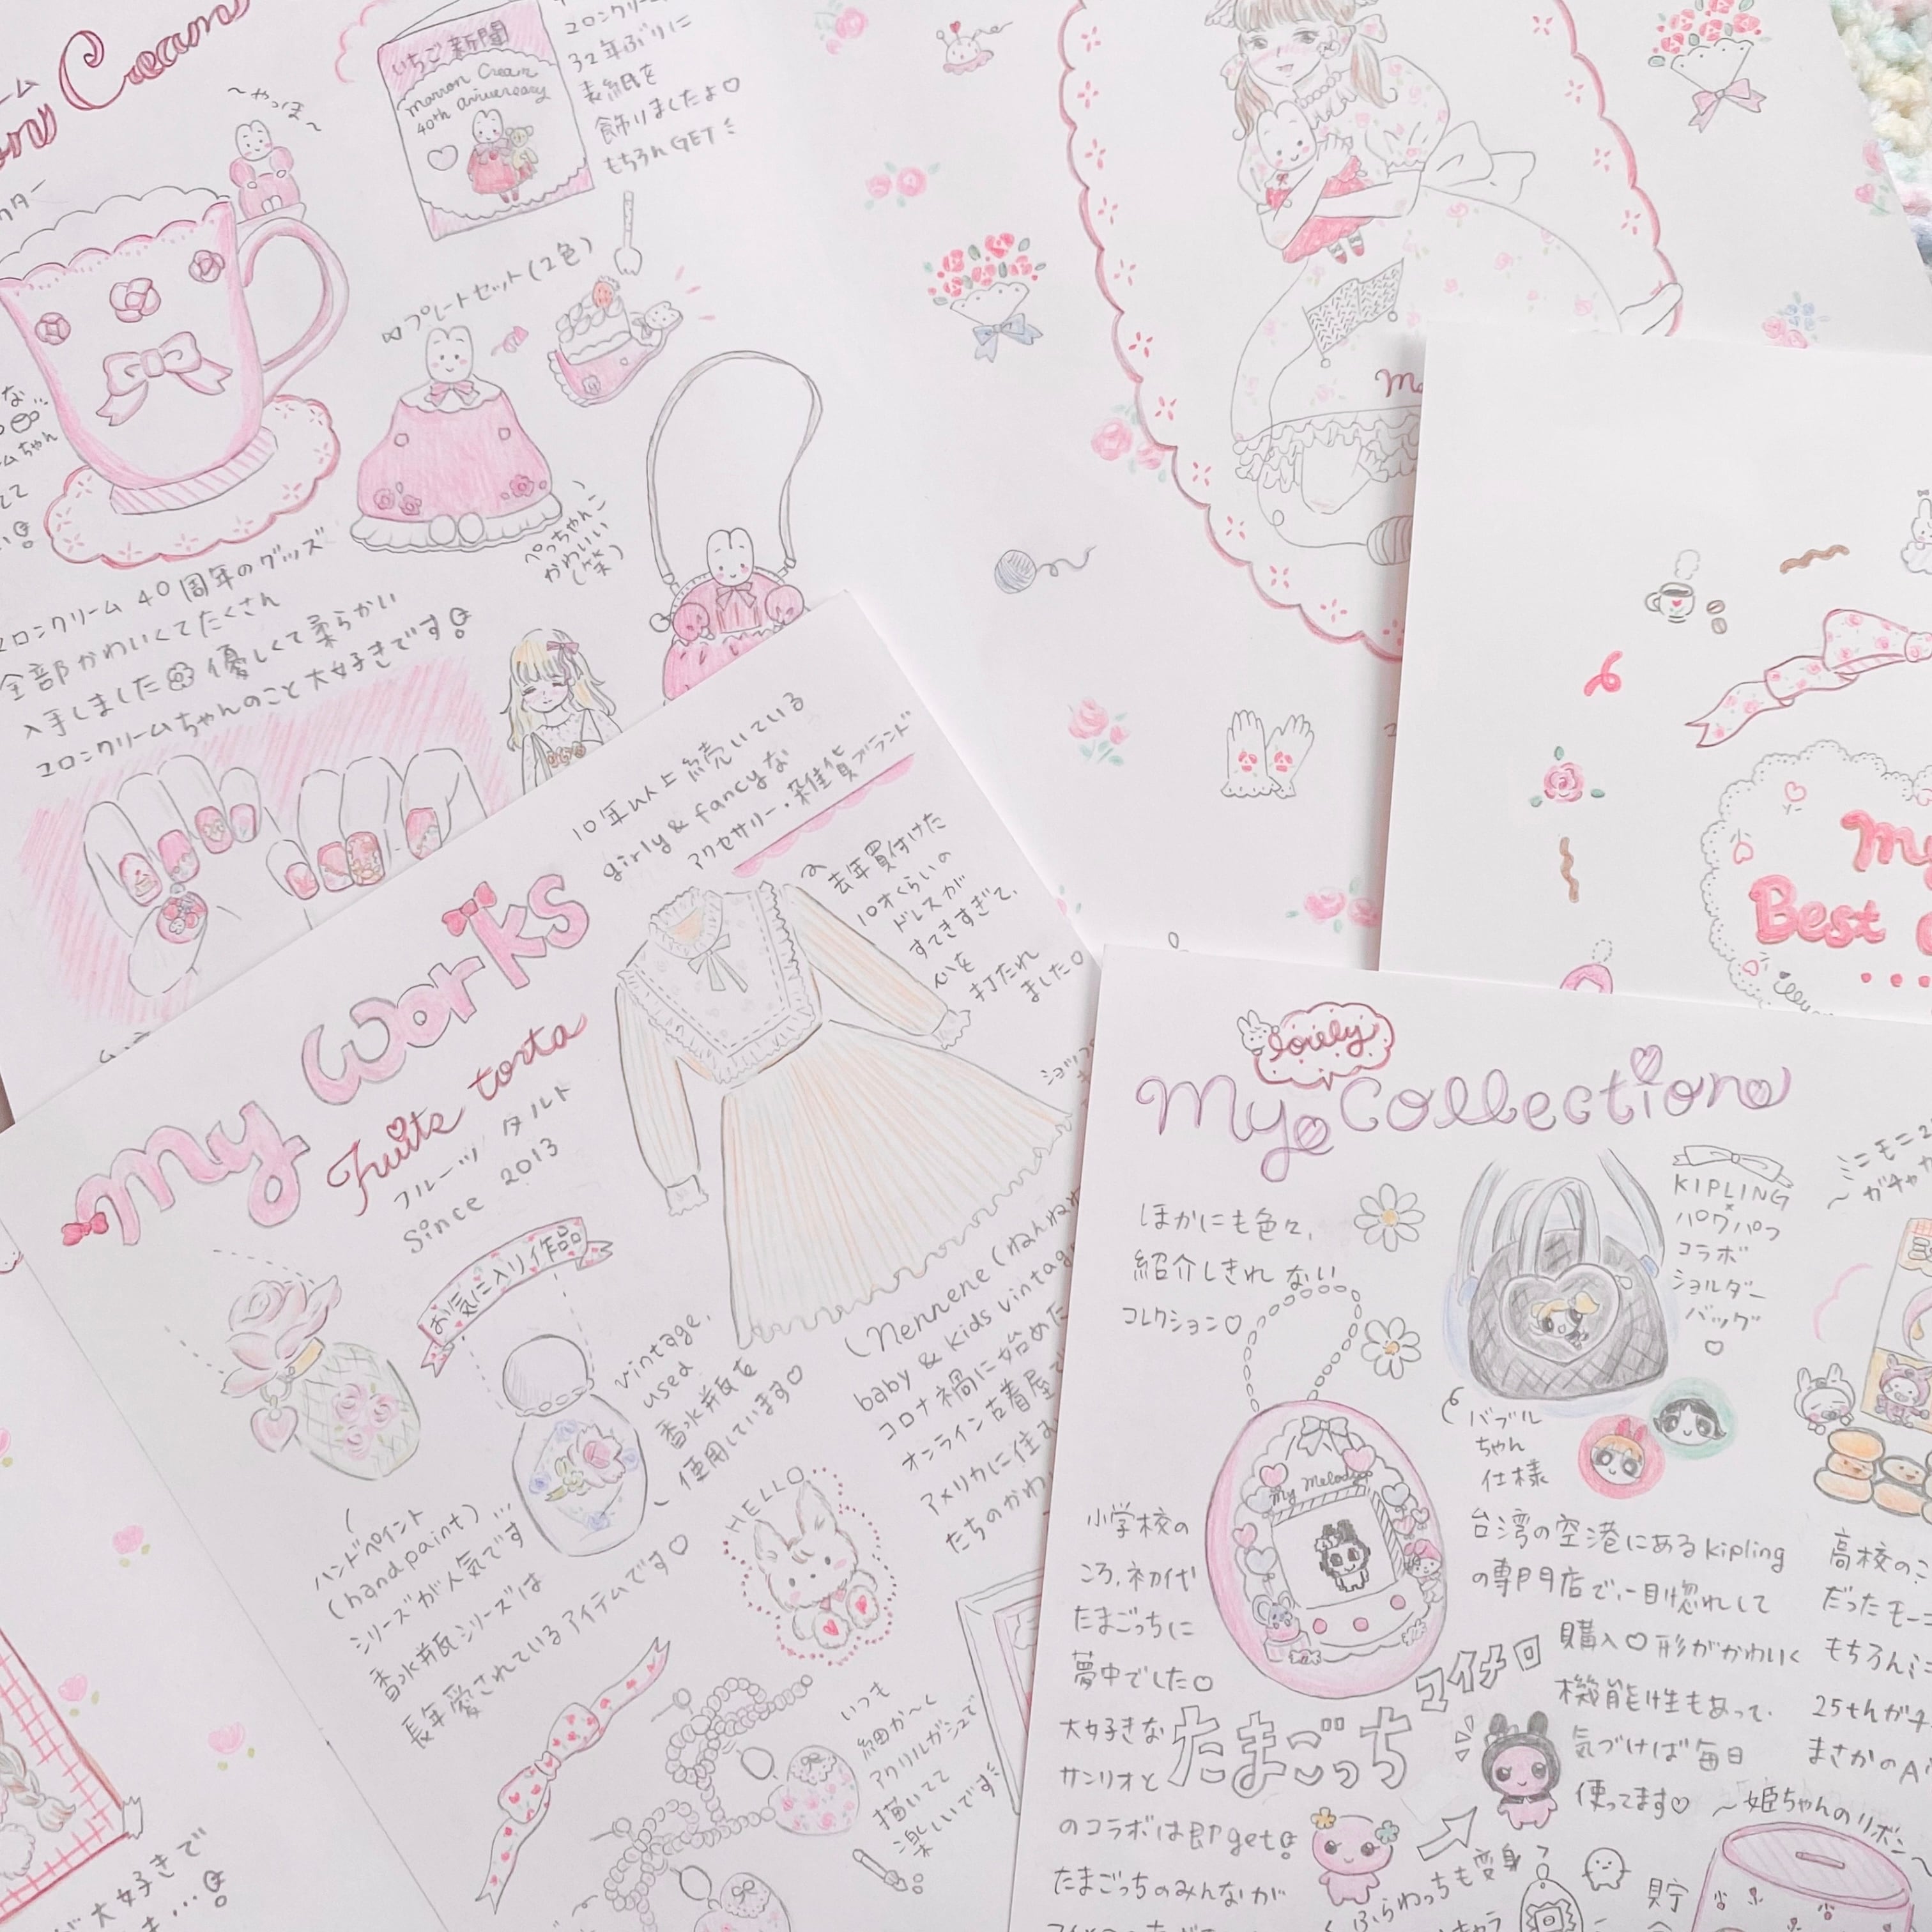 ーム
ny Cream
~やっほ~
いちご新聞
marron Cream
40th anniversary
32年ぶりに
表紙を
飾りましたよ♡
もちろんGET
プレートセット(2色)
ぺっちゃんこ
かわいい
(笑)
マロンクリーム 40周年のグッズ
全部かわいくてたくさん
入手しました 優しくて柔らかい
マロンクリームちゃんのこと大好きです
My
Best
My Works
Fruits torta
フルーツ タルト
Since 2013
10年以上続いている
girly & fancyな
アクセサリー・雑貨ブランド
去年買付けた
10才くらいの
ドレスが
すてきすぎて、
心を
打たれ
ました♡
お気に入り作品
vintage,
used
香水瓶を
使用しています♡
(Nennene (ねんねね
baby & kids vintage
コロナ禍に始めた
オンライン古着屋で
アメリカに住む
たちのかわ
ハンドペイント
(hand paint)
シリーズが人気です
香水瓶シリーズは
長年愛されているアイテムです♡
HELLO
いつも
細か〜く
アクリルガシュで
描いてて
楽しいです
大好きで
lovely
My Collection
ほかにも色々、
紹介しきれない
コレクション♡
KIPLING
×
パワパフ
コラボ
ショルダー
バッグ
♡
バブル
ちゃん
仕様
My Melody
小学校の
ころ、初代
たまごっちに
夢中でした♡
大好きな
サンリオと
のコラボは即get
たまごっちのみんなが
たまごっち
マイメロ
台湾の空港にあるKipling
の専門店で、一目惚れして
購入♡形がかわいく
機能性もあって、
気づけば毎日
使ってます♡
ふらわっちも変身
高校のこ
だったモー
もちろんミニ
25せんがチ
まさかのA
~姫ちゃんのリボン~
貯